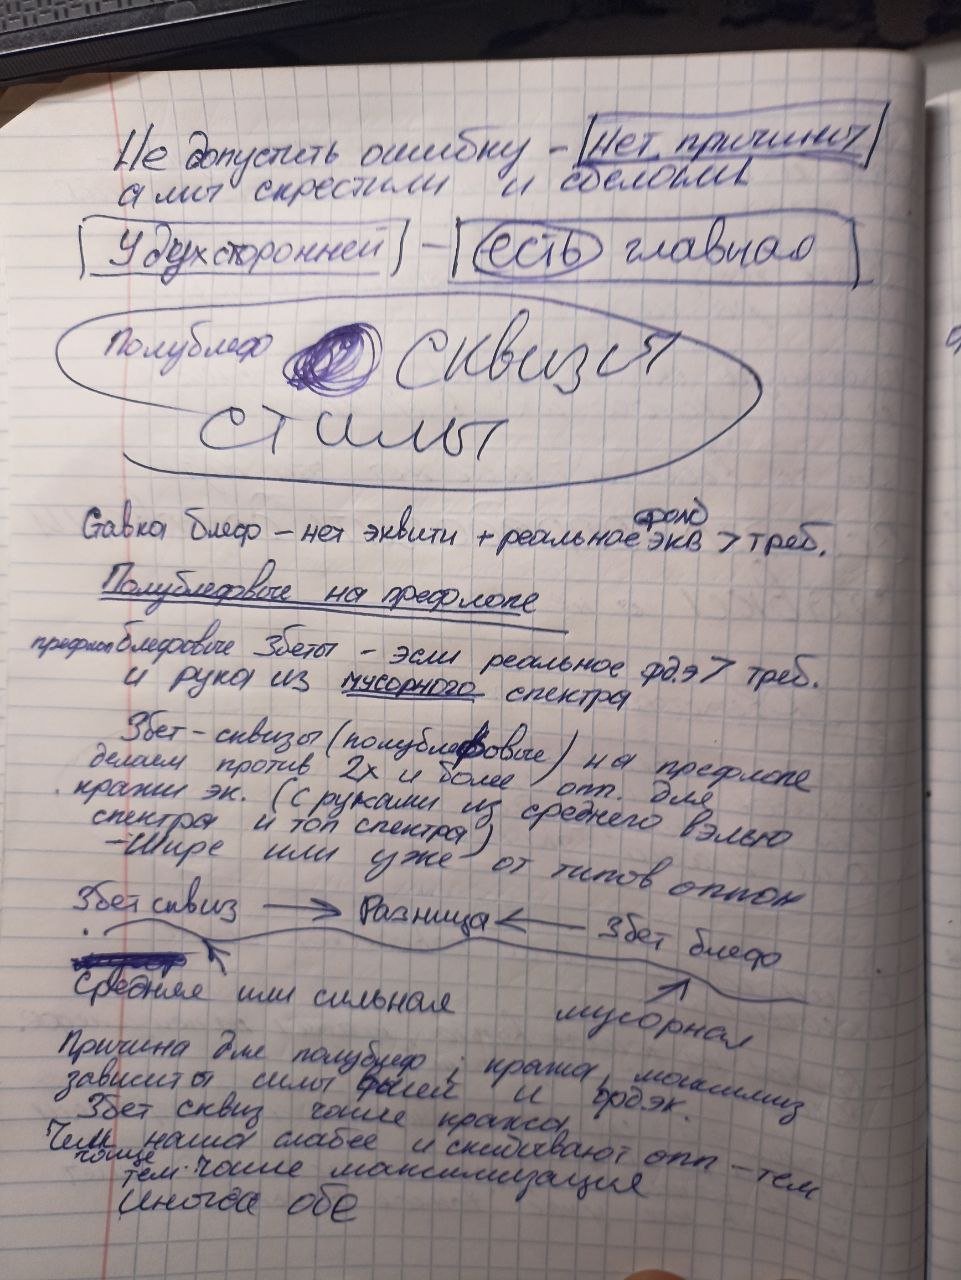 Не допустить ошибку - Нет причины
а мы скрестили и сделали
У двухсторонней - есть главная
Полублеф сквизы
стилы
фолд
Ставка блеф - нет эквити + реальное экв > треб.
Полублефовые на префлопе
префлоп блефовые 3беты - эсли реальное фд.э > треб.
и рука из мусорного спектра
3бет-сквизы (полублефовые) на префлопе
делаем против 2х и более опп. для
кражи эк. (с руками из среднего вэлью
спектра и топ спектра)
- Шире или уже от типов оппон
3бет сквиз → Разница ← 3бет блефо
Средняя или сильная
мусорная
Причина для полублеф: кража, максимиз
зависит от силы и фолд эк.
3бет сквиз чаще кража,
Чем наша слабее и скидывают опп - тем
чаще
тем чаще максимизация
Иногда обе